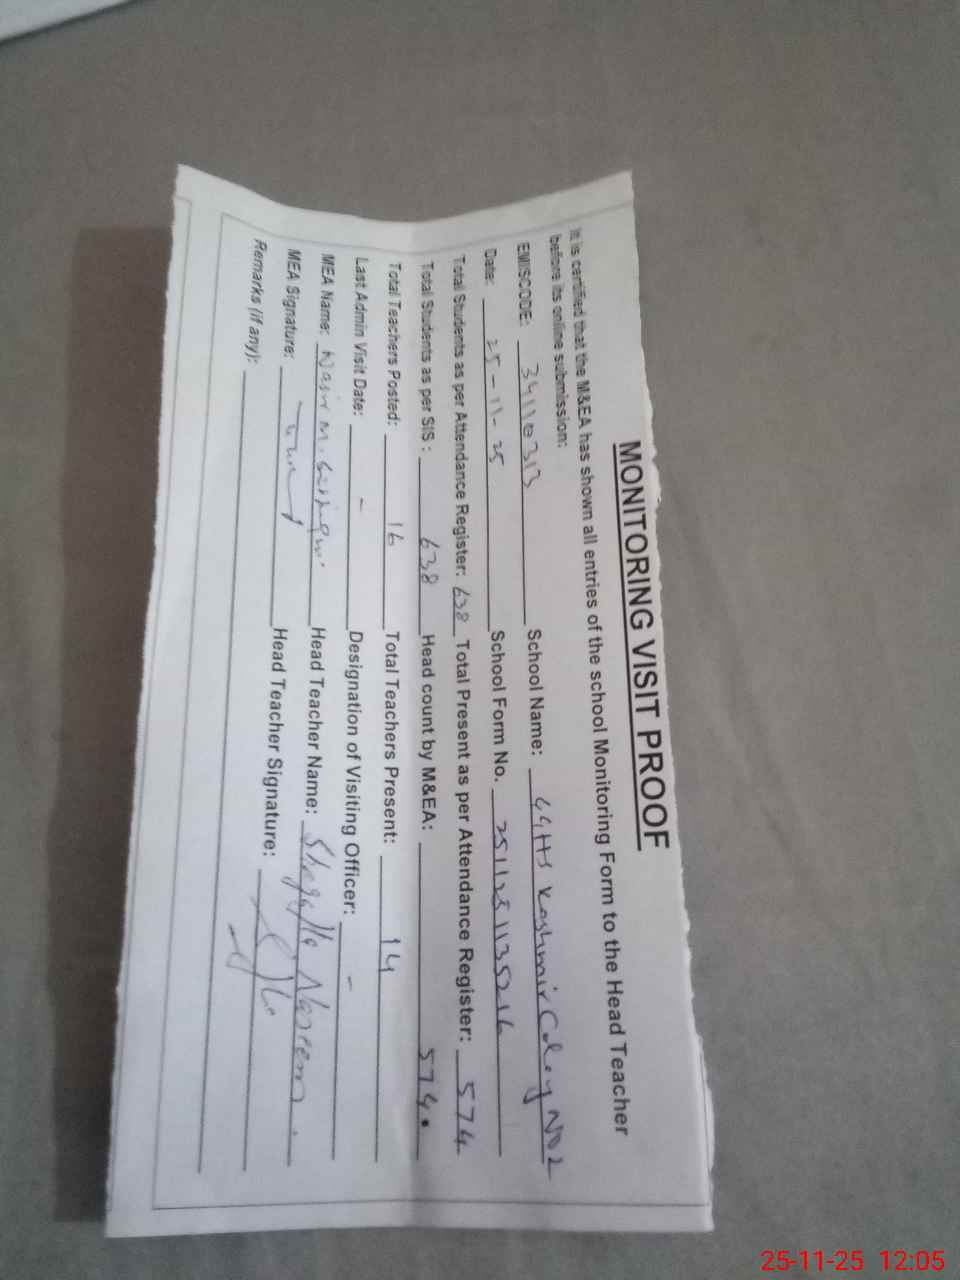 MONITORING VISIT PROOF
It is certified that the M&EA has shown all entries of the school Monitoring Form to the Head Teacher
before its online submission:
EMISCODE: 34110313 School Name: GGHS Kashmir Coloy No 2
Date: 25-11-25 School Form No. 2511251135216
Total Students as per Attendance Register: 638 Total Present as per Attendance Register: 574
Total Students as per SIS: 638 Head count by M&EA: 574.
Total Teachers Posted: 16 Total Teachers Present: 14
Last Admin Visit Date: - Designation of Visiting Officer: -
MEA Name: Nasir M. Head Teacher Name: Shagufta Nasreem.
MEA Signature: Head Teacher Signature:
Remarks (if any):
25-11-25 12:05